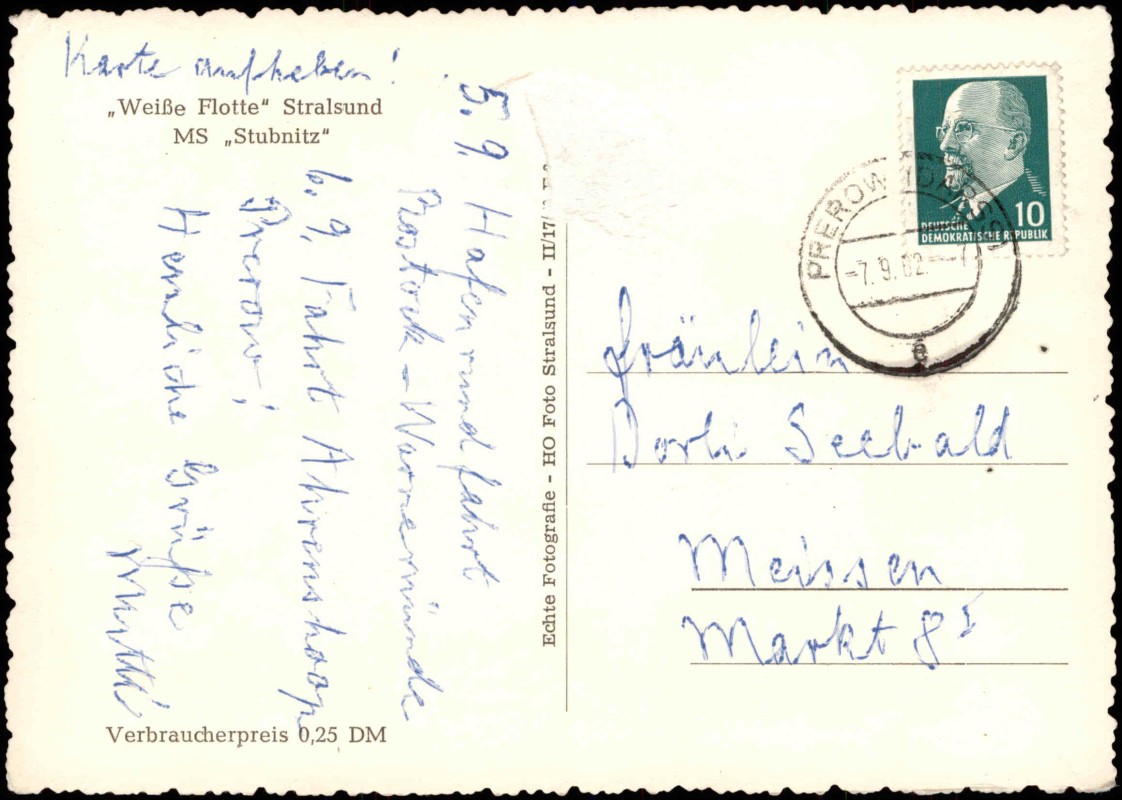 Karte aufheben!
„Weiße Flotte“ Stralsund
MS „Stubnitz“
5.9. Hafenrundfahrt
Rostock - Warnemünde
6.9. Fahrt Ahrenshoop
Prerow!
Herzliche Grüße
Mutti
Verbraucherpreis 0,25 DM
Echte Fotografie - HO Foto Stralsund - II/17/
10
DEUTSCHE
DEMOKRATISCHE REPUBLIK
PREROW (DARSS)
-7.9.62--7
e
Fräulein
Dorli Seebald
Meissen
Markt 8 I